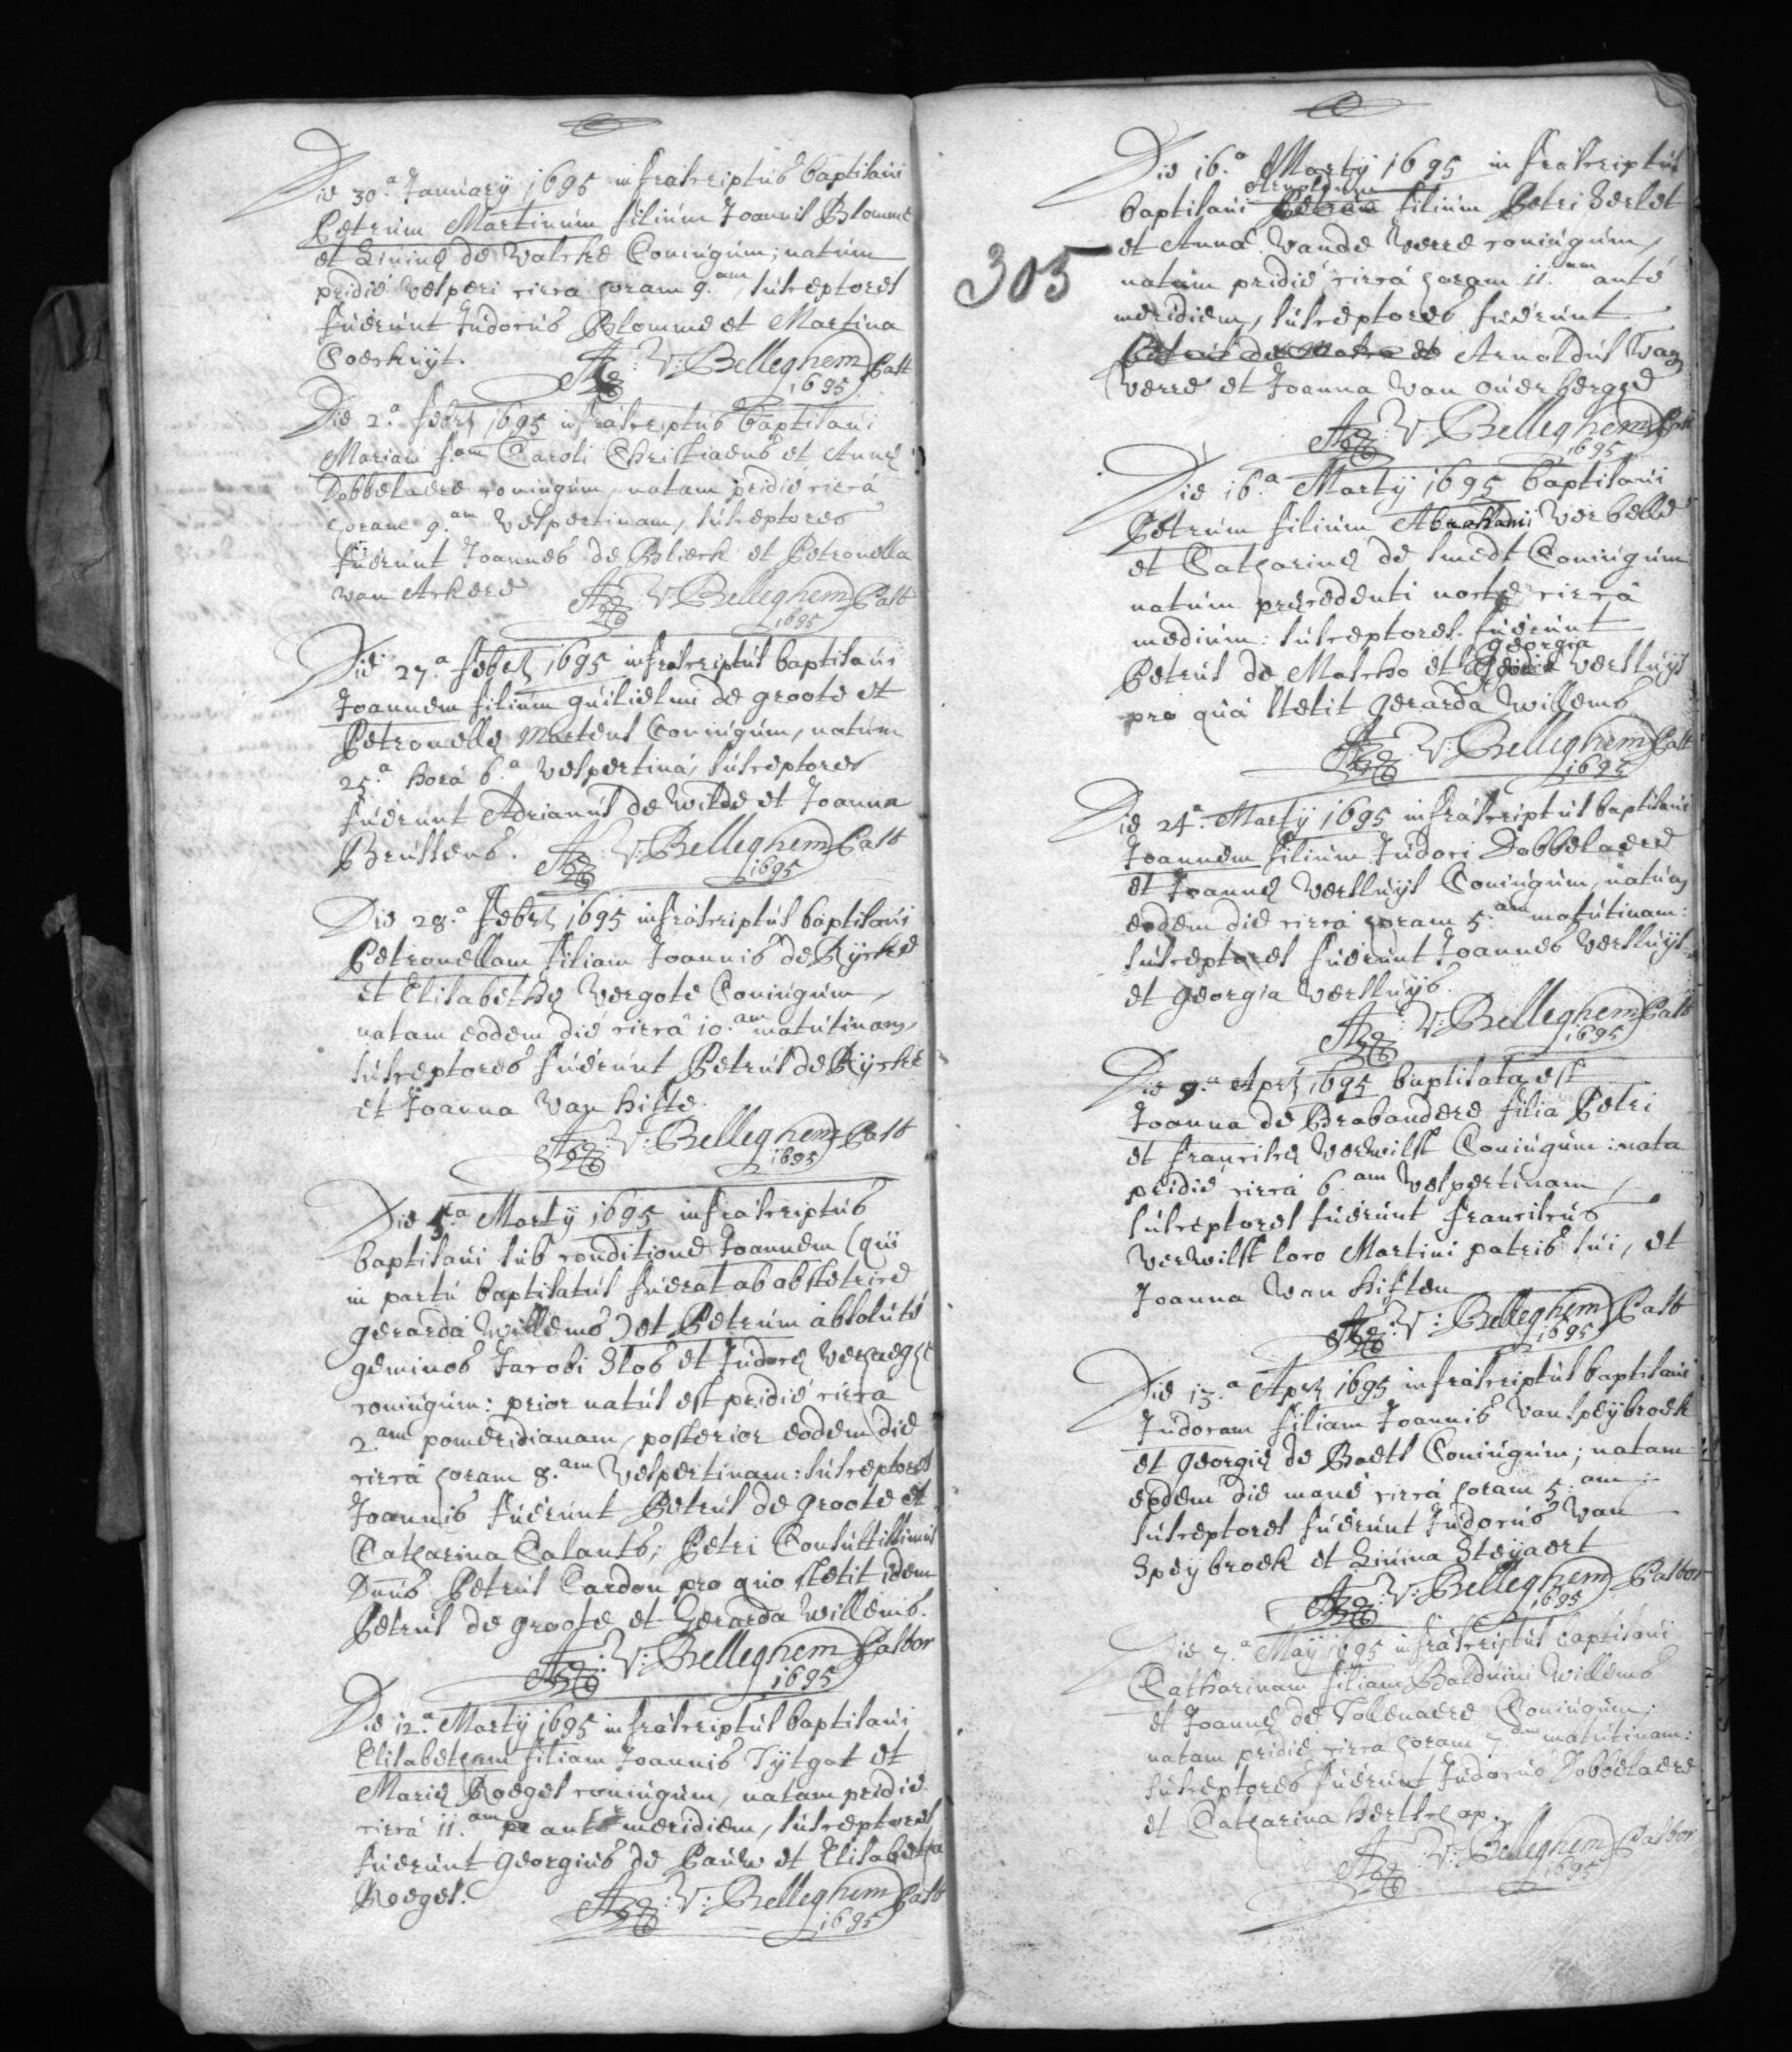 Die 30.a Januarÿ 1695 infrascriptus baptisaui
Petrum Martinum filium Joannis Blomme
et Liuinę de Valcke Coniugum; natum
pridie vesperi circa horam 9.am, susceptores
fuerunt Judocus Blomme et Martina
Coeckuÿt.
V: Belleghem Past
1695
Die 2.a febrij 1695 infrascriptus baptisaui
Mariam f.am Caroli Christiaens et Annę
Dobbelaere coniugum, natam pridie circa
horam 9.am vespertinam, susceptores
fuerunt Joannes de Blieck et Petronella
van Ackere
V: Belleghem Past
1695
Die 27.a feb 1695 infrascriptus baptisaui
Joannem filium guilielmi de groote et
Petronellę Martens Coniugum, natum
25.a hora 6.a vespertina, susceptores
fuerunt Adrianus de Wilde et Joanna
Brussens.
V: Belleghem Past
1695
Die 28.a feb 1695 infrascriptus baptisaui
Petronellam filiam Joannis de Rÿcke
et Elisabethę Vergote Coniugum,
natam eodem die circa 10.am matutinam,
susceptores fuerunt Petrus de Rÿcke
et Joanna Van hifte.
V: Belleghem Past
1695
Die 5.a Martÿ 1695 infrascriptus
baptisaui sub conditione Joannem (qui
in partu baptisatus fuerat ab obstetrice
gerarda Willems) et Petrum absolute
geminos Jacobi Slos et Judocę
coniugum: prior natus est pridie circa
2.am pomeridianam, posterior eodem die
circa horam 8.am Vespertinam: susceptores
Joannis fuerunt Petrus de groote et
Catharina Calants; Petri Consultissimus
Dnus Petrus Cardon pro quo stetit idem
Petrus de groote et Gerarda Willems.
V: Belleghem Pastor
1695
Die 12.a Martÿ 1695 infrascriptus baptisaui
Elisabetham filiam Joannis Tÿtgat et
Marię Roegel coniugum, natam pridie
circa 11.am ante meridiem, susceptores
fuerunt georgius de Pauw et Elisabetha
Roegel.
V: Belleghem Past
1695
Die 16.a Martÿ 1695 infrascriptus
Arnoldum
baptisaui Petrum filium Petri Serlet
et Anna Vande Verre coniugum,
natum pridie circa horam 11.am ante
meridiem, susceptores fuerunt
305
Arnoldus Van
Verre et Joanna Van ouerberghe
V: Belleghem Past
1695
Die 16.a Martÿ 1695 baptisaui
Petrum filium Abrahami Verbelle
et Catharinę de smedt Coniugum
natum pręcedenti nocte circa
medium: susceptores fuerunt
georgia
Petrus de Matcho et Versluÿs
pro qua stetit gerarda Willems
V: Belleghem Past
1695
Die 24.a Martÿ 1695 infrascriptus baptisaui
Joannem filium Judoci Dobbelaere
et Joannę Versluÿs Coniugum, natum
eodem die circa horam 5.am matutinam:
susceptores fuerunt Joannes Versluÿs
et georgia Versluÿs.
V: Belleghem Past
1695
Die 9.a Apr 1695 baptisata est
Joanna de Brabandere filia Petri
et franciscę Verwilst Coniugum: nata
pridie circa 6.am vespertinam,
susceptores fuerunt franciscus
Verwilst loco Martini patris sui, et
Joanna Van hiften
V: Belleghem Past
1695
Die 13.a Apr 1695 infrascriptus baptisaui
Judocam filiam Joannis Van speÿbroek
et georgię de Baets Coniugum; natam
eodem die mane circa horam 5.am:
susceptores fuerunt Judocus Van
Speÿbroek et Liuina Steÿaert
V: Belleghem Pastor
1695
Die 7.a Maÿ 1695 infrascriptus baptisaui
Catharinam filiam Balduini Willems
et Joannę de Tollenaere Coniugum;
natam pridie circa horam 7.am matutinam:
susceptores fuerunt Judocus Dobbelaere
et Catharina herthchap.
V: Belleghem Pastor
1695